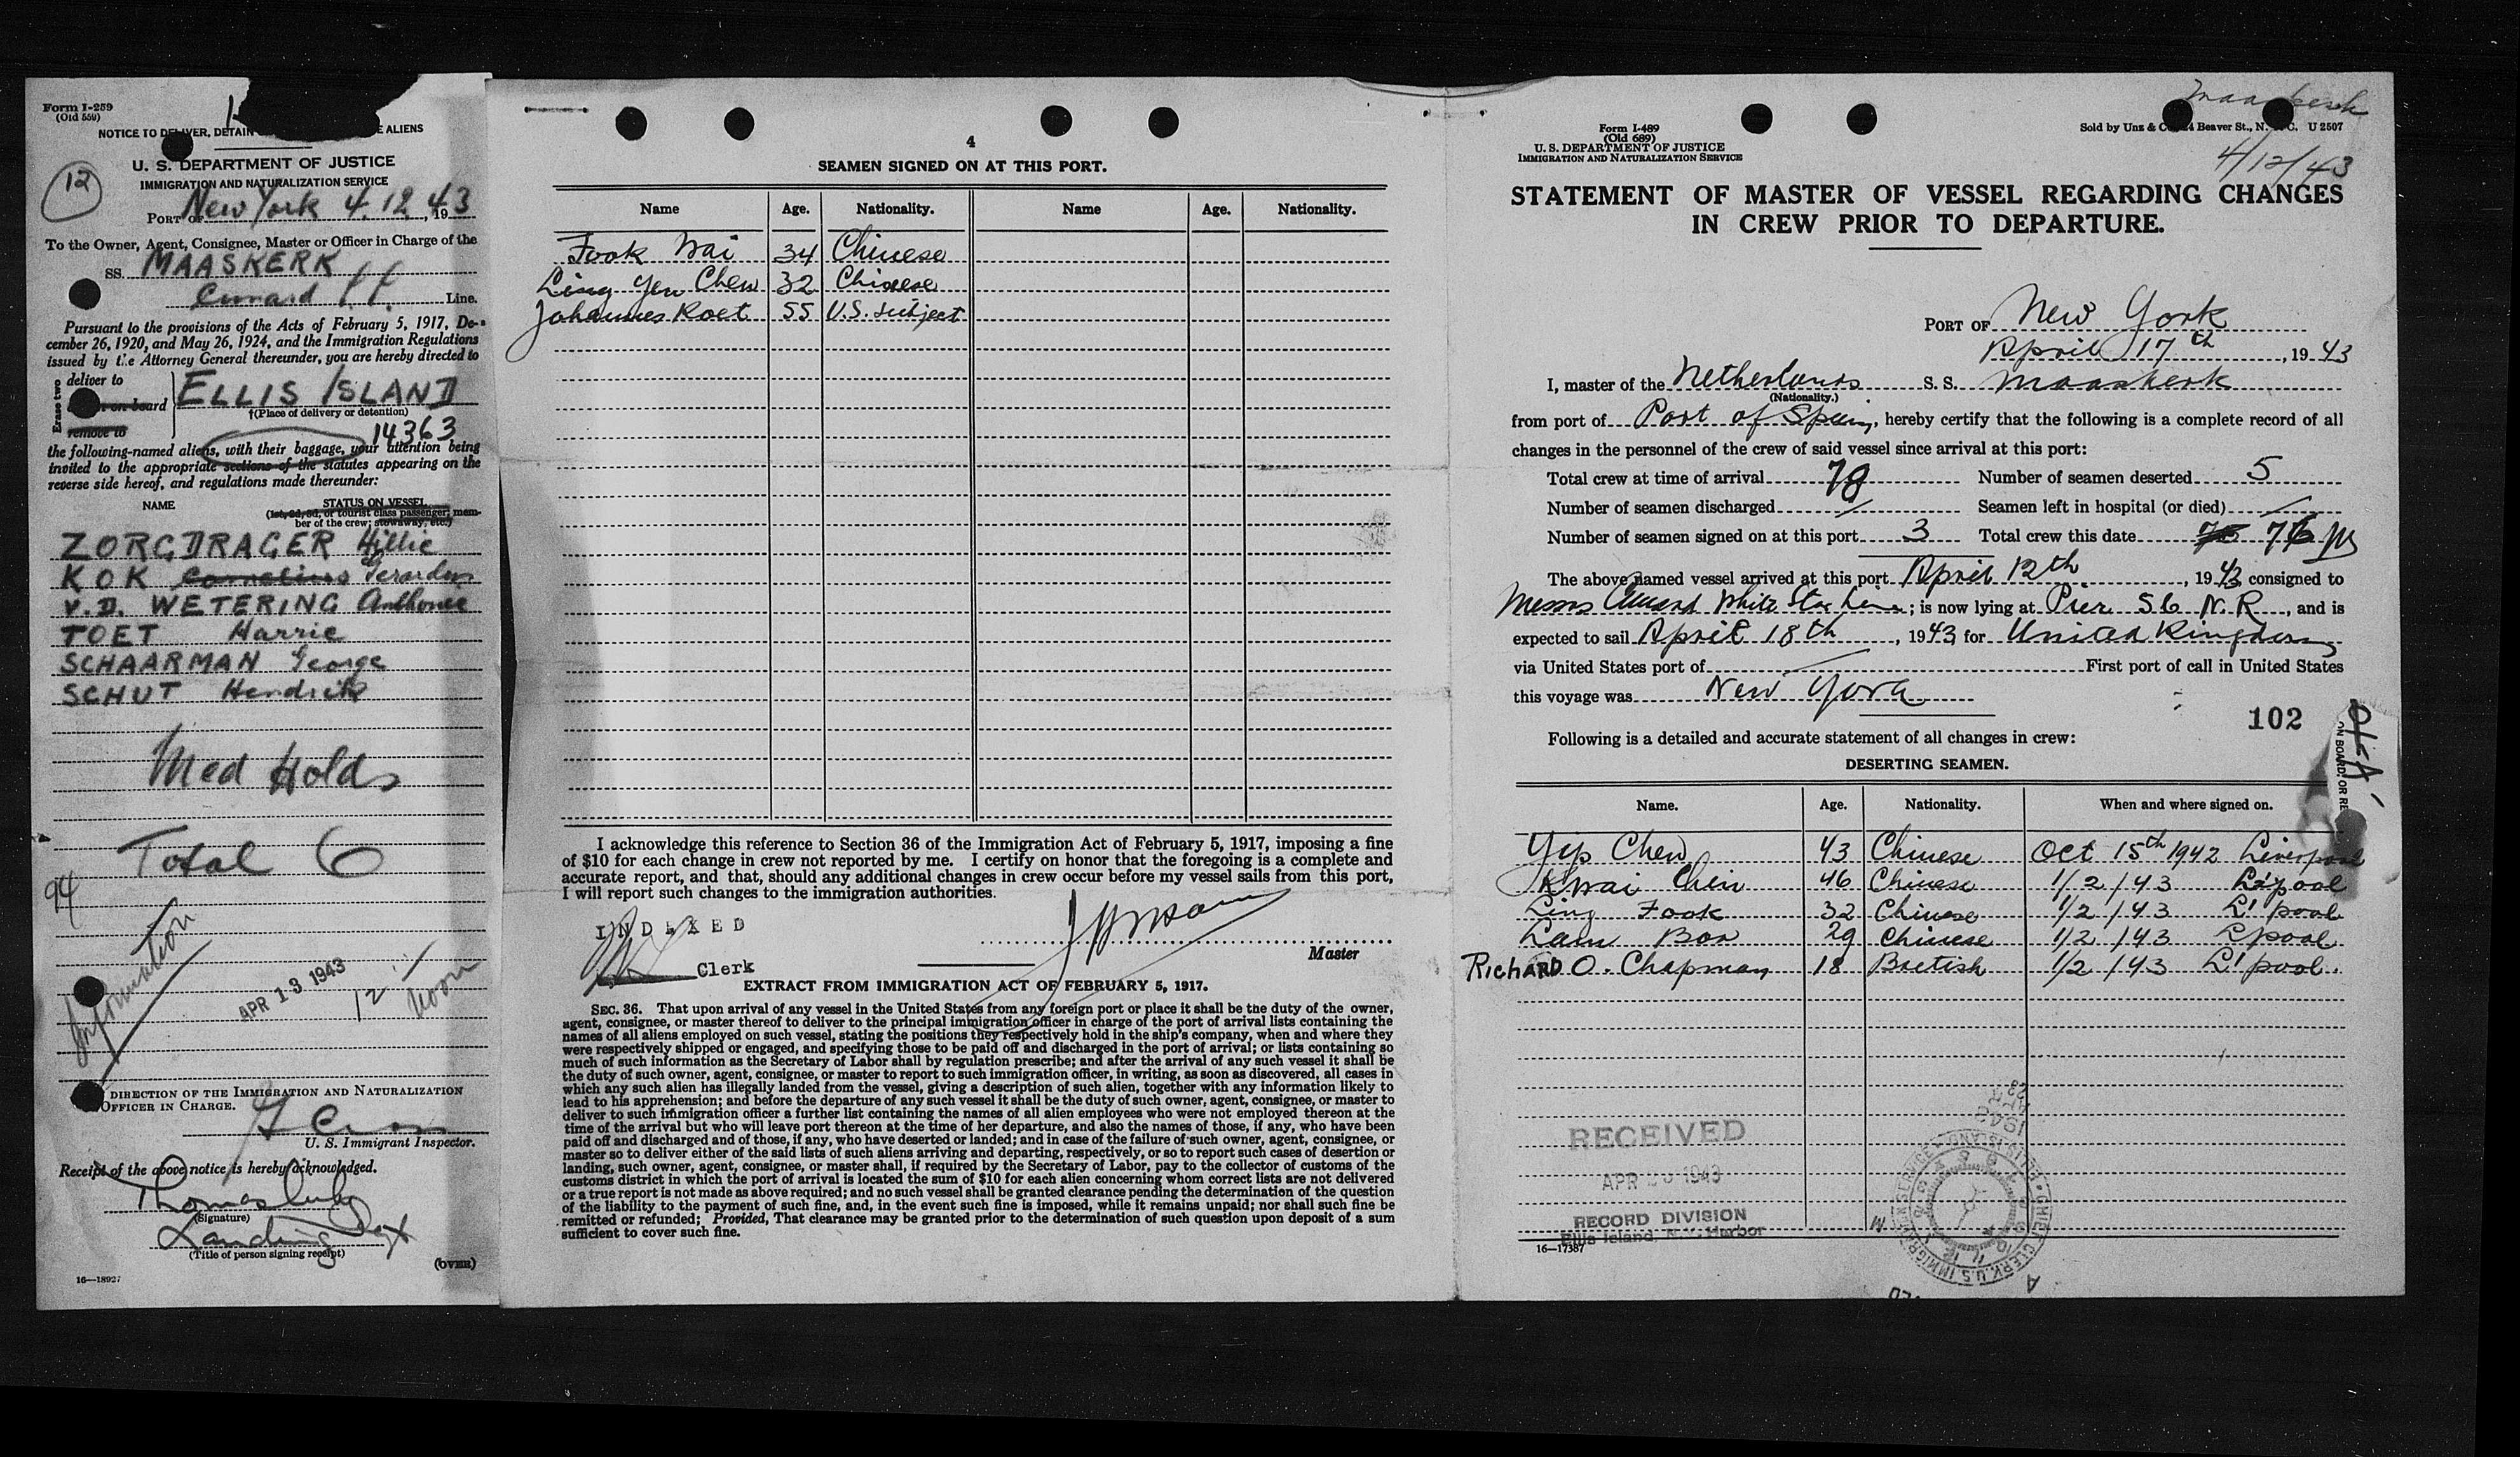 Form I-259
(Old 559)
NOTICE TO DELIVER, DETAIN ALIENS
12
U. S. DEPARTMENT OF JUSTICE
IMMIGRATION AND NATURALIZATION SERVICE
PORT OF New York 4.12, 1943
To the Owner, Agent, Consignee, Master or Officer in Charge of the
SS. MAASKERK
Cunard Line.
Pursuant to the provisions of the Acts of February 5, 1917, De-
cember 26, 1920, and May 26, 1924, and the Immigration Regulations
issued by the Attorney General thereunder, you are hereby directed to
Erase two
deliver to
on board
remove to
ELLIS ISLAND
†(Place of delivery or detention)
14363
the following-named aliens, with their baggage, your attention being
invited to the appropriate sections of the statutes appearing on the
reverse side hereof, and regulations made thereunder:
NAME
STATUS ON VESSEL
(1st, 2d, 3d, or tourist class passenger; mem-
ber of the crew; stowaway, etc.)
ZORGDRAGER Hillie
KOK Cornelius Gerardus
V.D. WETERING Anthonie
TOET Harrie
SCHAARMAN George
SCHUT Hendrik
Med Holds
Total 6
94
Information
APR 13 1943
12 Noon
DIRECTION OF THE IMMIGRATION AND NATURALIZATION
OFFICER IN CHARGE.
U. S. Immigrant Inspector.
Receipt of the above notice is hereby acknowledged.
Thomas
(Signature)
Landing
(Title of person signing receipt)
(OVER)
16—18927
4
SEAMEN SIGNED ON AT THIS PORT.
Name Age. Nationality. Name Age. Nationality.
Fook Wai 34 Chinese
Ling Yen Chew 32 Chinese
Johannes Roet 55 U.S. Subject
I acknowledge this reference to Section 36 of the Immigration Act of February 5, 1917, imposing a fine
of $10 for each change in crew not reported by me. I certify on honor that the foregoing is a complete and
accurate report, and that, should any additional changes in crew occur before my vessel sails from this port,
I will report such changes to the immigration authorities.
INDEXED
Clerk
Master
EXTRACT FROM IMMIGRATION ACT OF FEBRUARY 5, 1917.
SEC. 36. That upon arrival of any vessel in the United States from any foreign port or place it shall be the duty of the owner,
agent, consignee, or master thereof to deliver to the principal immigration officer in charge of the port of arrival lists containing the
names of all aliens employed on such vessel, stating the positions they respectively hold in the ship's company, when and where they
were respectively shipped or engaged, and specifying those to be paid off and discharged in the port of arrival; or lists containing so
much of such information as the Secretary of Labor shall by regulation prescribe; and after the arrival of any such vessel it shall be
the duty of such owner, agent, consignee, or master to report to such immigration officer, in writing, as soon as discovered, all cases in
which any such alien has illegally landed from the vessel, giving a description of such alien, together with any information likely to
lead to his apprehension; and before the departure of any such vessel it shall be the duty of such owner, agent, consignee, or master to
deliver to such immigration officer a further list containing the names of all alien employees who were not employed thereon at the
time of the arrival but who will leave port thereon at the time of her departure, and also the names of those, if any, who have been
paid off and discharged and of those, if any, who have deserted or landed; and in case of the failure of such owner, agent, consignee, or
master so to deliver either of the said lists of such aliens arriving and departing, respectively, or so to report such cases of desertion or
landing, such owner, agent, consignee, or master shall, if required by the Secretary of Labor, pay to the collector of customs of the
customs district in which the port of arrival is located the sum of $10 for each alien concerning whom correct lists are not delivered
or a true report is not made as above required; and no such vessel shall be granted clearance pending the determination of the question
of the liability to the payment of such fine, and, in the event such fine is imposed, while it remains unpaid; nor shall such fine be
remitted or refunded; Provided, That clearance may be granted prior to the determination of such question upon deposit of a sum
sufficient to cover such fine.
Maaskerk
4/12/43
Form I-489
(Old 689)
U. S. DEPARTMENT OF JUSTICE
IMMIGRATION AND NATURALIZATION SERVICE
Sold by Unz & Co., 24 Beaver St., N. Y. C. U 2507
STATEMENT OF MASTER OF VESSEL REGARDING CHANGES
IN CREW PRIOR TO DEPARTURE.
PORT OF New York
April 17th, 1943
I, master of the Netherlands S. S. Maaskerk
(Nationality.)
from port of Port of Spain, hereby certify that the following is a complete record of all
changes in the personnel of the crew of said vessel since arrival at this port:
Total crew at time of arrival 78 Number of seamen deserted 5
Number of seamen discharged / Seamen left in hospital (or died) /
Number of seamen signed on at this port 3 Total crew this date 76
The above named vessel arrived at this port April 12th, 1943 consigned to
Messrs Cunard White Star Line; is now lying at Pier 56 N. R., and is
expected to sail April 18th, 1943 for United Kingdom
via United States port of First port of call in United States
this voyage was New York
102
Following is a detailed and accurate statement of all changes in crew:
DESERTING SEAMEN.
Name. Age. Nationality. When and where signed on.
Yip Chew 43 Chinese Oct 15th 1942 Liverpool
Kwai Chin 46 Chinese 1/2/43 L'pool
Ling Fook 32 Chinese 1/2/43 L'pool
Lam Bow 29 Chinese 1/2/43 L'pool
Richard O. Chapman 18 British 1/2/43 L'pool.
RECEIVED
APR 20 1943
RECORD DIVISION
Ellis Island, N. Y. Harbor
16—17387